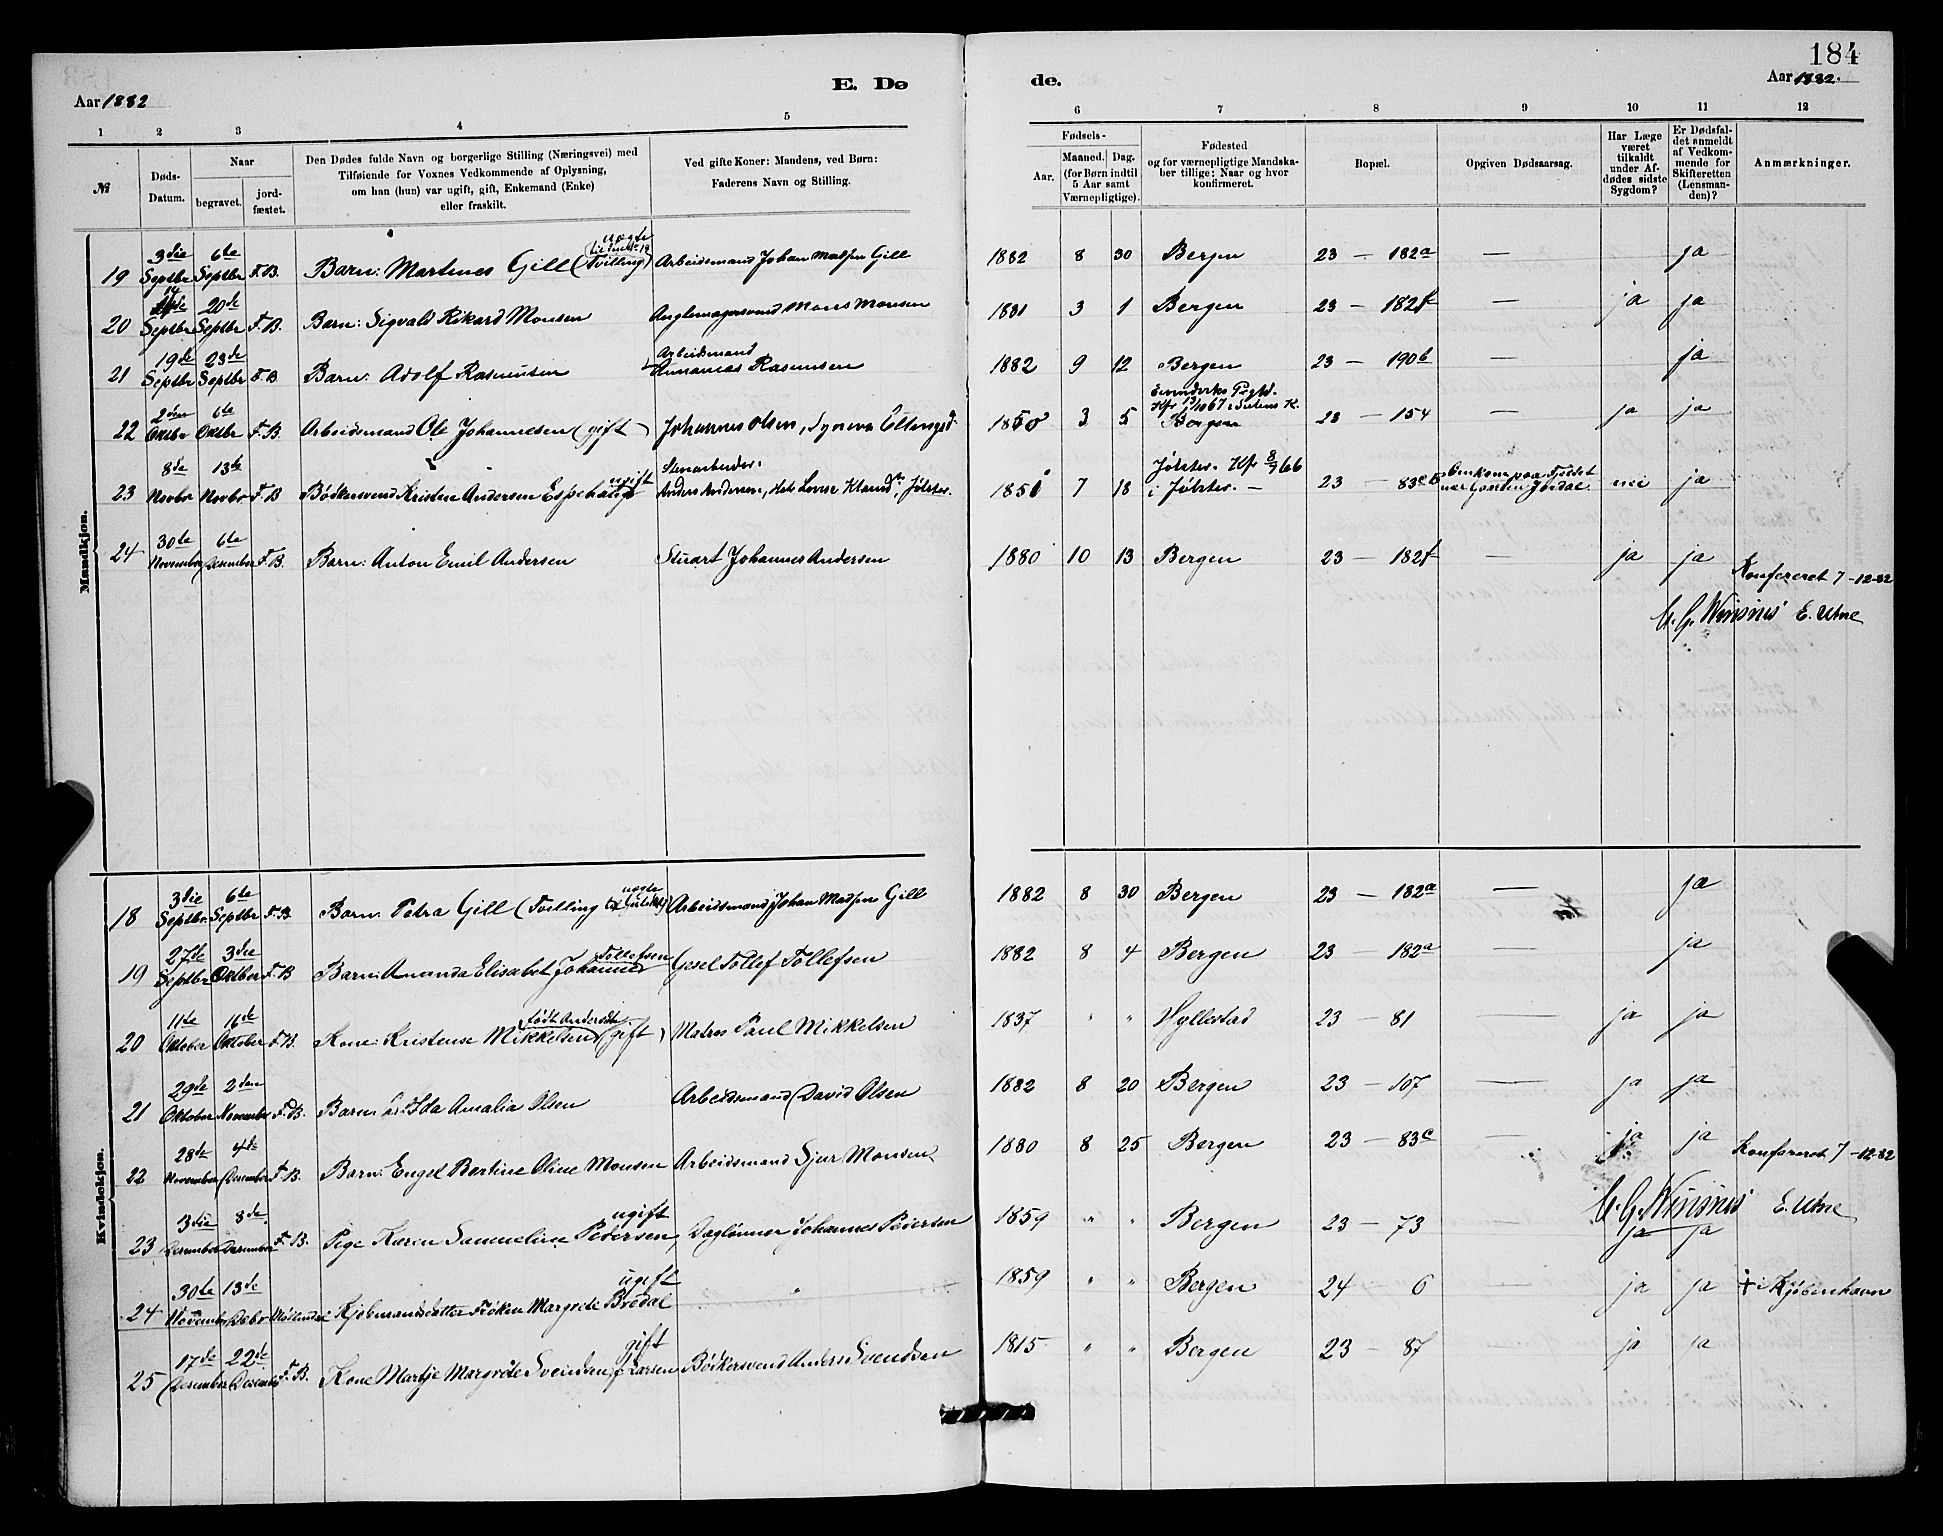 184
Aar 1882
E. Dø
de.
Aar 1882.
1 2 3 4 5 6 7 8 9 10 11 12
№
Døds-Datum.
Naar
begravet.
jord-fæstet.
Den Dødes fulde Navn og borgerlige Stilling (Næringsvei) med
Tilføiende for Voxnes Vedkommende af Oplysning,
om han (hun) var ugift, gift, Enkemand (Enke)
eller fraskilt.
Ved gifte Koner: Mandens, ved Børn:
Faderens Navn og Stilling.
Fødsels-
Aar.
Maaned. Dag.
(for Børn indtil
5 Aar samt
Værnepligtige).
Fødested
og for værnepligtige Mandska-
ber tillige: Naar og hvor
konfirmeret.
Bopæl.
Opgiven Dødsaarsag.
Har Læge
været
tilkaldt
under Af-
dødes sidste
Sygdom?
Er Dødsfal-
det anmeldt
af Vedkom-
mende for
Skifteretten
(Lensman-
den)?
Anmærkninger.
Mandkjøn.
19 3die Septbr 6te Septbr F.B. Barn: Martines Gill (Tvilling) Arbeidsmand Johan Madsen Gill 1882 8 30 Bergen 23 — 182a — ja
20 14 Septbr 20de Septbr F.B. Barn: Sigvald Rikard Monsen Mons Monsen 1881 3 1 Bergen 23 — 182f — ja ja
21 19de Septbr 23de Septbr F.B Barn: Adolf Rasmusen Arbeidsmand Annanias Rasmusen 1882 9 12 Bergen 23 — 190b — ja
22 2den Oktbr 6te Oktbr F.B. Arbeidsmand Ole Johannesen (gift) Johannes Olsen, 1850 3 5 Bergen 23 — 154 — ja ja
23 8de Novbr 13de Novbr F.B. Bødkersvend Kristen Andersen Espehaug ugift Stenarbeider: Anders Andersen, Jølster. 1851 7 18 Jølster. Kfr 8/9 66 i Jølster. — 23 — 83c nei ja
24 30te November 6te Desember F.B. Barn: Anton Emil Andersen Stuart Johannes Andersen 1880 10 13 Bergen 23 — 182f — ja ja
Konfereret 7-12-82
E. Utne
Kvindekjøn.
18 3die Septbr. 6te Septbr F.B Barn: Petra Gill (Tvilling Arbeidsmand Johan Madsen Gill 1882 8 30 Bergen 23 — 182a — ja
19 27de Septbr 3die Oktber F.B Barn: Amanda Elisabet Johanne Tollefsen Gesel Tollef Tollefsen 1882 8 4 Bergen 23 — 182a — ja
20 11te Oktober 16de Oktober F.B. Kone: Kristense Mikkelsen født Andersdtr (gift) Matros Paul Mikkelsen 1837 " " Hyllestad 23 — 81 — ja ja
21 29de Oktober 2den November F.B. Barn: Ida Amalia Olsen Arbeidsmand David Olsen 1882 8 20 Bergen 23 — 107 — ja ja
22 28de November 4de Desember F.B. Barn: Engel Bertine Oline Monsen Arbeidsmand Sjur Monsen 1880 8 25 Bergen 23 — 83c — ja ja Konfereret 7-12-82
E. Utne
23 3die Desember 8de Desember F.B. Pige Karen Sammeline Pedersen, ugift Daglønner Johannes Pedersen 1859 " " Bergen 23 — 73 — ja ja
24 30te November 13de Debr Kjøbmandsdatter Frøken Margrete Bredal ugift " 1859 " " Bergen 24 — 6 — ja ja † i Kjøbenhavn
25 17de Desember 22de F.B. Kone Martje Margrete Svendsen f Larsen gift Bødkersvend Anders Svendsen 1815 " " Bergen 23 — 87 — ja ja